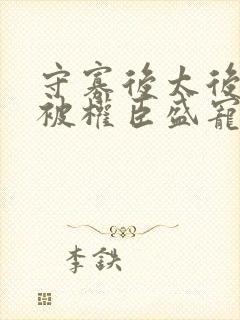 守寡後太後
被權臣盛寵
李鉄